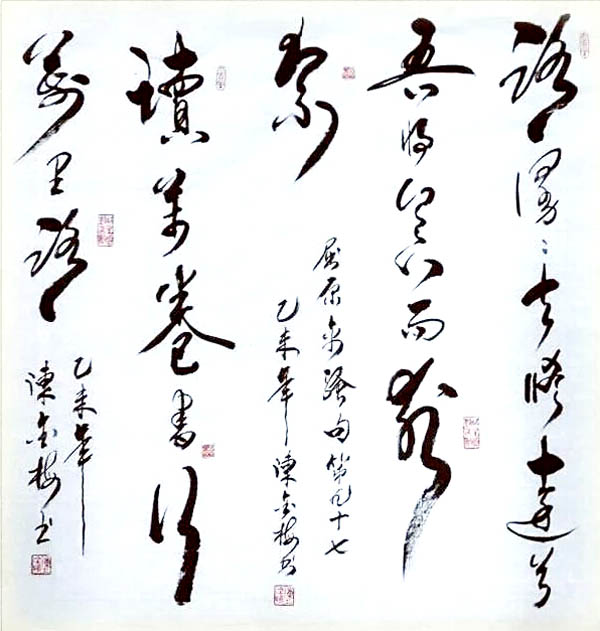 路漫漫其脩遠兮
吾將上下而求
索
屈原离騷句第九十七
乙未年陳金梅书
讀萬卷書行
萬里路
乙未年
陳金梅书